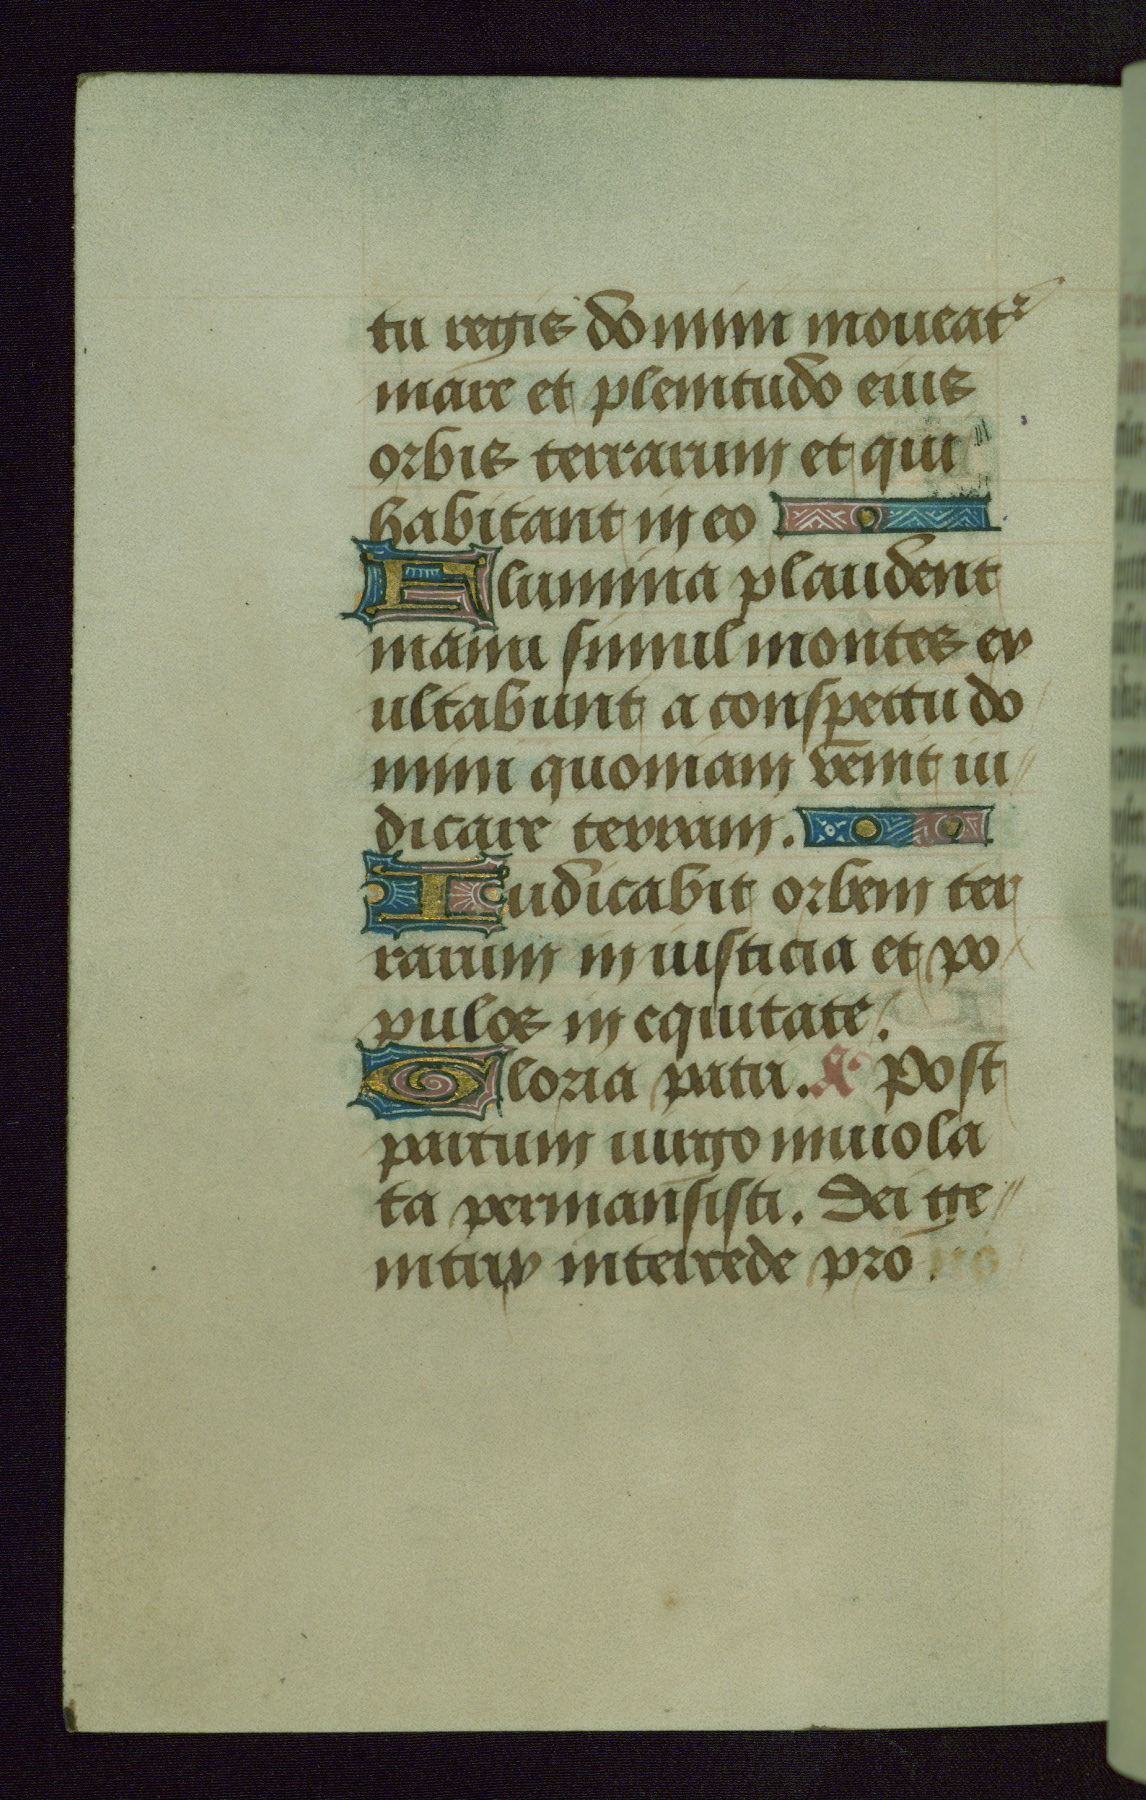 tu regis domini moueat᷑
mare et plenitudo eius
orbis terrarum et qui
habitant in eo
Flumina plaudent
manu simul montes ex
ultabunt a conspectu do
mini quoniam venit iu
dicare terram.
Iudicabit orbem ter
rarum in iusticia et po
pulos in equitate.
Gloria patri. A Post
partum uirgo inuiola
ta permansisti. Dei ge
nitrix intercede pro no